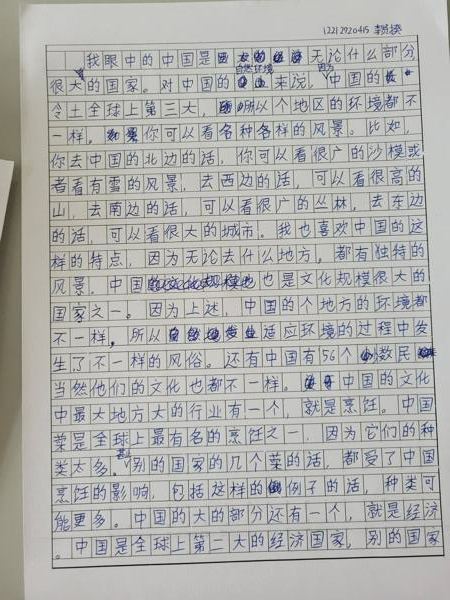 12212920415
我眼中的中国是无论什么部分
很大的国家。对中国的自然环境来说,因为中国的
令土全球上第三大,所以个地区的环境都不
一样。你可以看各种各样的风景。比如,
你去中国的北边的话,你可以看很广的沙模或
者看有雪的风景,去西边的话,可以看很高的
山,去南边的话,可以看很广的丛林,去东边
的话,可以看很大的城市。我也喜欢中国的这
样的特点,因为无论去什么地方。都有独特的
风景。中国也是文化规模很大的
国家之一。因为上述,中国的个地方的环境都
不一样。所以适应环境的过程中发
生了不一样的风俗。还有中国有56个数民
当然他们的文化也都不一样。中国的文化
中最大地方大的行业有一个,就是烹饪。中国
菜是全球上最有名的烹饪之一,因为它们的种
类太多。甚别的国家的几个菜的话,都受了中国
烹饪的影响,包括这样的例子的话,种类可
能更多。中国的大的部分还有一个,就是经济
。中国是全球上第二大的经济国家,别的国家